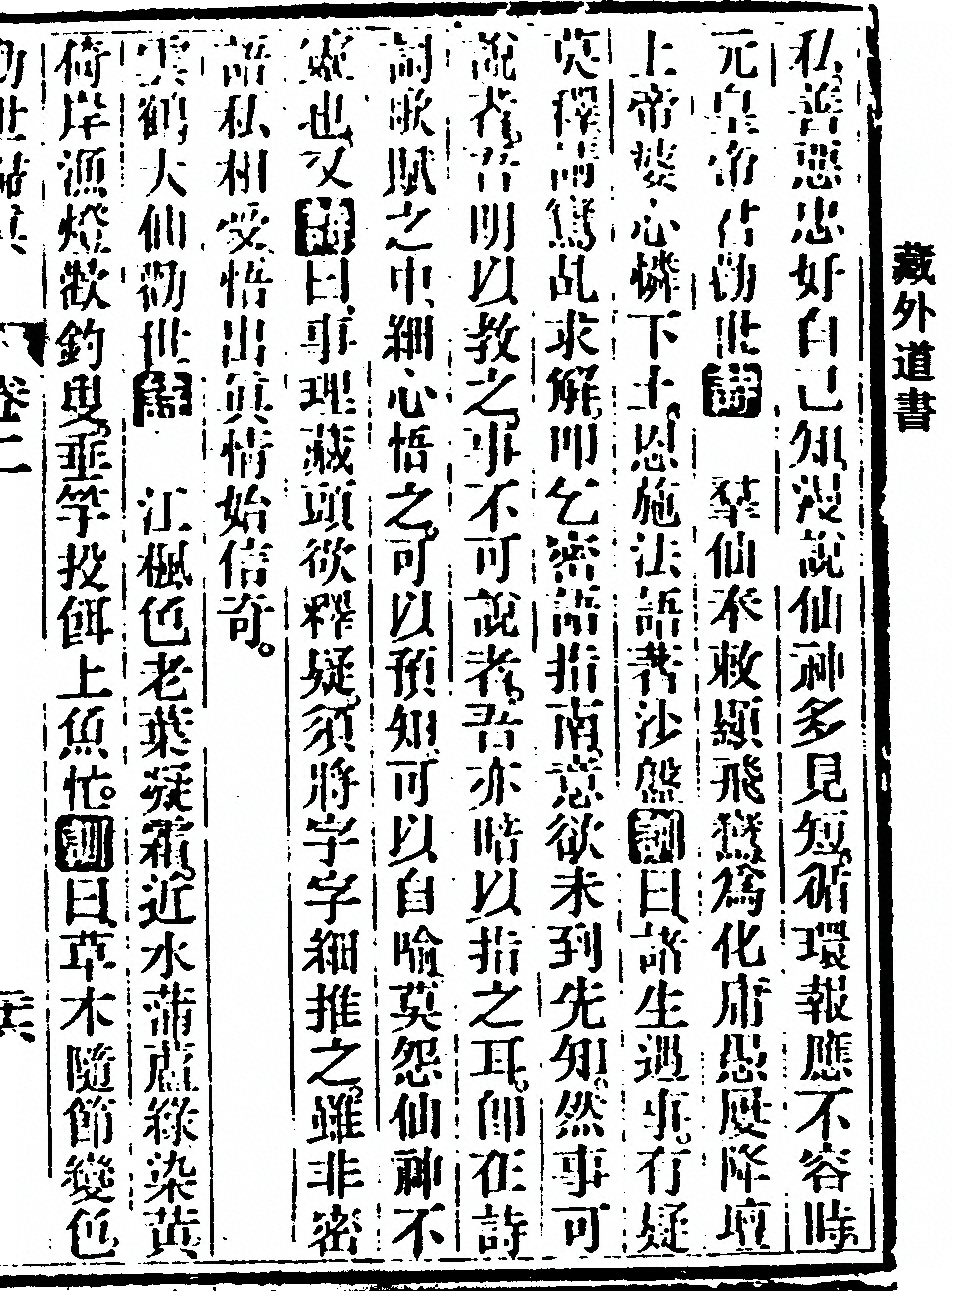 藏外道書
私善惡忠好自己知漫說仙神多見短循環報應不容時
元皇帝佔勸世詩　羣仙奉敕顯飛鸞為化庸愚屢降壇
上帝婆心憐下土恩施法語著沙盤訓曰諸生遇事有疑
莫釋請鸞乩求解叩乞密語指南意欲未到先知然事可
說者吾明以教之事不可說者吾亦暗以指之耳卽在詩
詞歌賦之中細心悟之可以預知可以自喻莫怨仙神不
靈也又詩曰事理藏頭欲釋疑須將字字細推之雖非密
語私相受悟出真情始信奇
雲鶴大仙勸世詩　江楓色老葉凝霜近水蒲蘆綠染黃
倚岸漁燈歡釣叟垂竿投餌上魚忙訓曰草木隨節變色
卷二